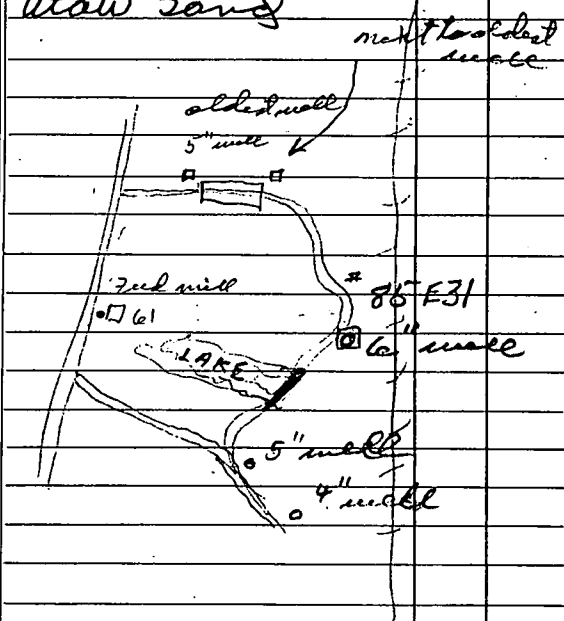 Sand
next to oldest
well
oldest well
5" well
Feed mill
61
# 85 E31
6" well
LAKE
5" well
4" well